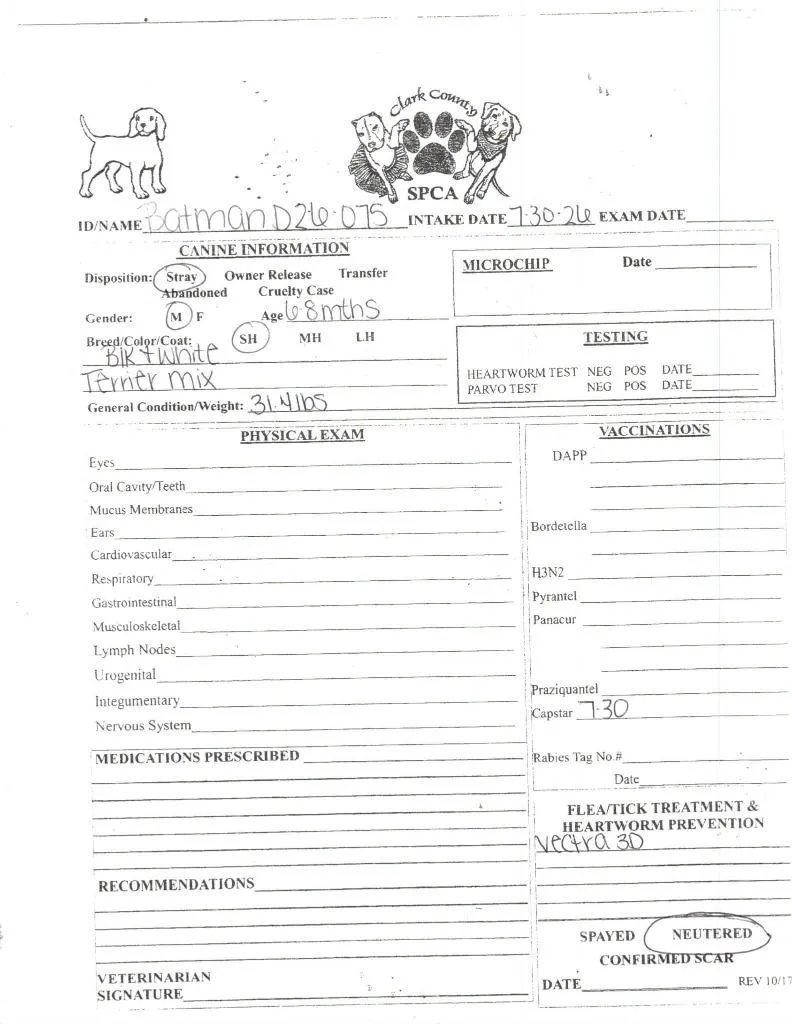 Clark County
SPCA
ID/NAME Batman D26-075 INTAKE DATE 7-30-26 EXAM DATE
CANINE INFORMATION
Disposition: Stray Owner Release Transfer
Abandoned Cruelty Case
Gender: M F Age 6-8 mths
Breed/Color/Coat: SH MH LH
Blk + White
Terrier mix
General Condition/Weight: 31.4 lbs
MICROCHIP Date
TESTING
HEARTWORM TEST NEG POS DATE
PARVO TEST NEG POS DATE
PHYSICAL EXAM
Eyes
Oral Cavity/Teeth
Mucus Membranes
Ears
Cardiovascular
Respiratory
Gastrointestinal
Musculoskeletal
Lymph Nodes
Urogenital
Integumentary
Nervous System
MEDICATIONS PRESCRIBED
RECOMMENDATIONS
VETERINARIAN
SIGNATURE
VACCINATIONS
DAPP
Bordetella
H3N2
Pyrantel
Panacur
Praziquantel
Capstar 7-30
Rabies Tag No.#
Date
FLEA/TICK TREATMENT &
HEARTWORM PREVENTION
Vectra 3D
SPAYED NEUTERED
CONFIRMED SCAR
DATE REV 10/17